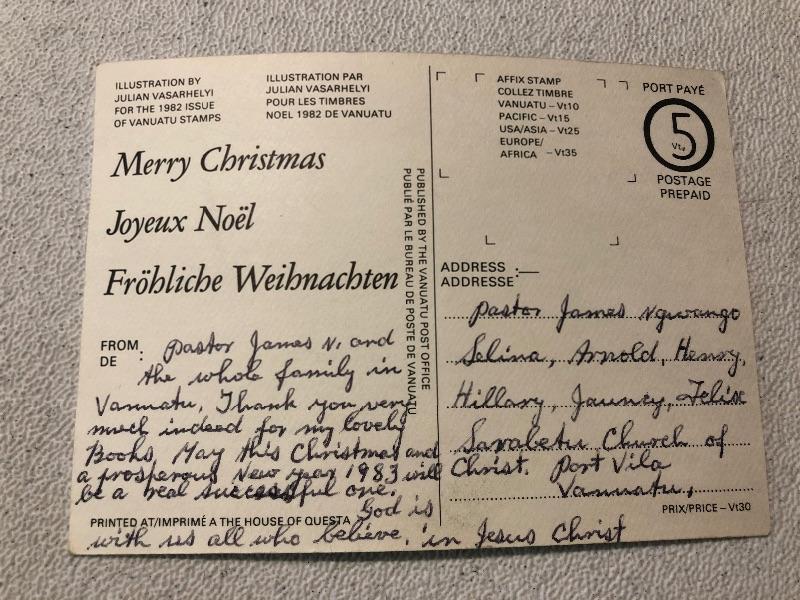 ILLUSTRATION BY
JULIAN VASARHELYI
FOR THE 1982 ISSUE
OF VANUATU STAMPS
ILLUSTRATION PAR
JULIAN VASARHELYI
POUR LES TIMBRES
NOEL 1982 DE VANUATU
Merry Christmas
Joyeux Noël
Fröhliche Weihnachten
FROM:
DE
Pastor James N. and
the whole family in
Vanuatu, Thank you very
much indeed for my lovely
Books, May this Christmas and
a prosperous New year 1983 will
be a real successful one.
God is
with us all who believe, in Jesus Christ
PRINTED AT/IMPRIMÉ A THE HOUSE OF QUESTA
PUBLISHED BY THE VANUATU POST OFFICE
PUBLIÉ PAR LE BUREAU DE POSTE DE VANUATU
AFFIX STAMP
COLLEZ TIMBRE
VANUATU – Vt10
PACIFIC – Vt15
USA/ASIA – Vt25
EUROPE/
AFRICA – Vt35
PORT PAYÉ
5
Vt.
POSTAGE
PREPAID
ADDRESS :—
ADDRESSE
Pastor James Ngwango
Selina, Arnold, Henry,
Hillary, Jauncy, Felix
Sarabetu Church of
Christ. Port Vila
Vanuatu,
PRIX/PRICE – Vt30